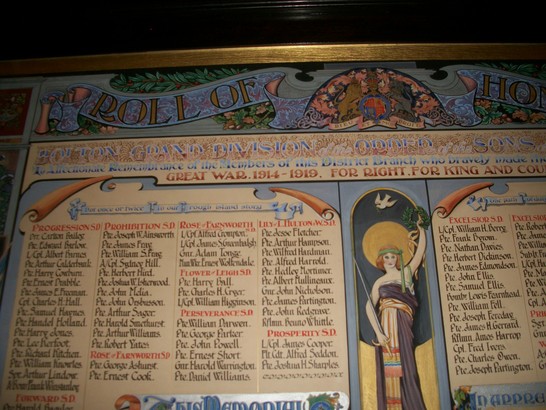 ROLL OF HON
BOLTON GRAND DIVISION of the ORDER of the SONS
In Affectionate Remembrance of the Members of this District Branch who bravely made
GREAT WAR. 1914-1919. FOR RIGHT, FOR KING AND COU
Not once or twice in our rough island story
PROGRESSION S.D
Pte. Edward Barlow.
L/Cpl Albert Burns
Pte. Arthur Calderbank
Pte. Harry Cowburn
Pte. Ernest Dribble
Pte. James E. Brennan
Cpl. Charles H. Hall
Pte. Samuel Haynes
Pte. Handel Holland
Pte. Harry Jones
Pte. Lee Kerfoot
Pte. Richard Pitchen
Pte. William Knowles
Sgn. Arthur Lindow
Rfmn. Frank Worstenholme
FORWARD S.D
PROHIBITION S.D
Pte. Joseph W. Ainsworth
Pte. James Fahy
Pte. William Pling
L/Cpl Sydney Hill
Pte. Herbert Hurd
Pte. Joshua W. Isherwood
Pte. John Melia
Pte. John Openshaw
Pte. Arthur Sager
Pte. Harold Smethurst
Pte. Arthur Williams
Pte. Robert Yates
ROSE of FARNWORTH S.D
Pte. George Ashurst
Pte. Ernest Cook
ROSE of FARNWORTH
L/Cpl Alfred Crompton
L/Cpl James Greenhalgh
Gnr. Adam Longe
FLOWER of LEIGH S.D
Pte. Harry Ball
Pte. Charles H. Cryer
L/Cpl William Higginson
PERSEVERANCE S.D
Pte. William Davison
Pte. George Harter
Pte. John Powell
Pte. Ernest Short
Gnr. Harold Warrington
Pte. Daniel Williams
LILY of HILTON W. S.D
Pte. Jesse Fletcher
Pte. Arthur Hampson
Pte. Wilfred Hardman
Pte. Alfred Horrold
Pte. Hedley Mortimer
Pte. Albert Mullineux
Gnr. John Nicholson
Pte. James Partington
Pte. John Redgrave
Rflmn. Bruno Whittle
PROSPERITY S.D
L/Cpl. James Cooper
Mt. Cdt. Alfred Seddon
Pte. Joshua H. Sharples
EXCELSIOR S.D
L/Cpl. William H. Berry
Pte. Frank Dyson
Pte. Nathan Davies
Pte. Herbert Dickinson
Pte. James Edmondson
Pte. John Ellis
Pte. Samuel Ellis
Bombr. Lewis Fearnhead
Pte. William Fell
Pte. Joseph Fereday
Pte. James H. Gerrard
Rflmn. Amos Harrop
Cpl. Fred Ivers
Pte. Charles Owen
Pte. Joseph Partington
EXCELSI
THIS MEMORIAL
IN APPRE